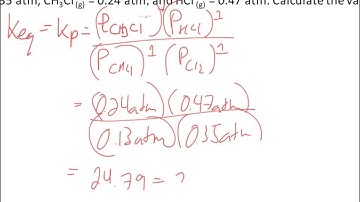 35 atm, CH3Cl (g) = 0.24 atm, and HCl (g) = 0.47 atm. Calculate the va
Keq = Kp = (PCH3Cl)^1 (PHCl)^1
(PCH4)^1 (PCl2)^1
= (0.24atm)(0.47atm)
(0.13atm)(0.35atm)
= 24.79 = 2